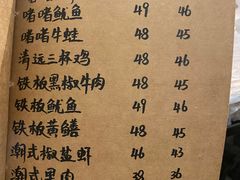 啫啫鱿鱼 49 46
啫啫牛蛙 48 45
清远三杯鸡 48 45
铁板黑椒牛肉 48 45
铁板鱿鱼 49 46
铁板黄鳝 48 45
潮式椒盐虾 46 43
潮式果肉 38 36